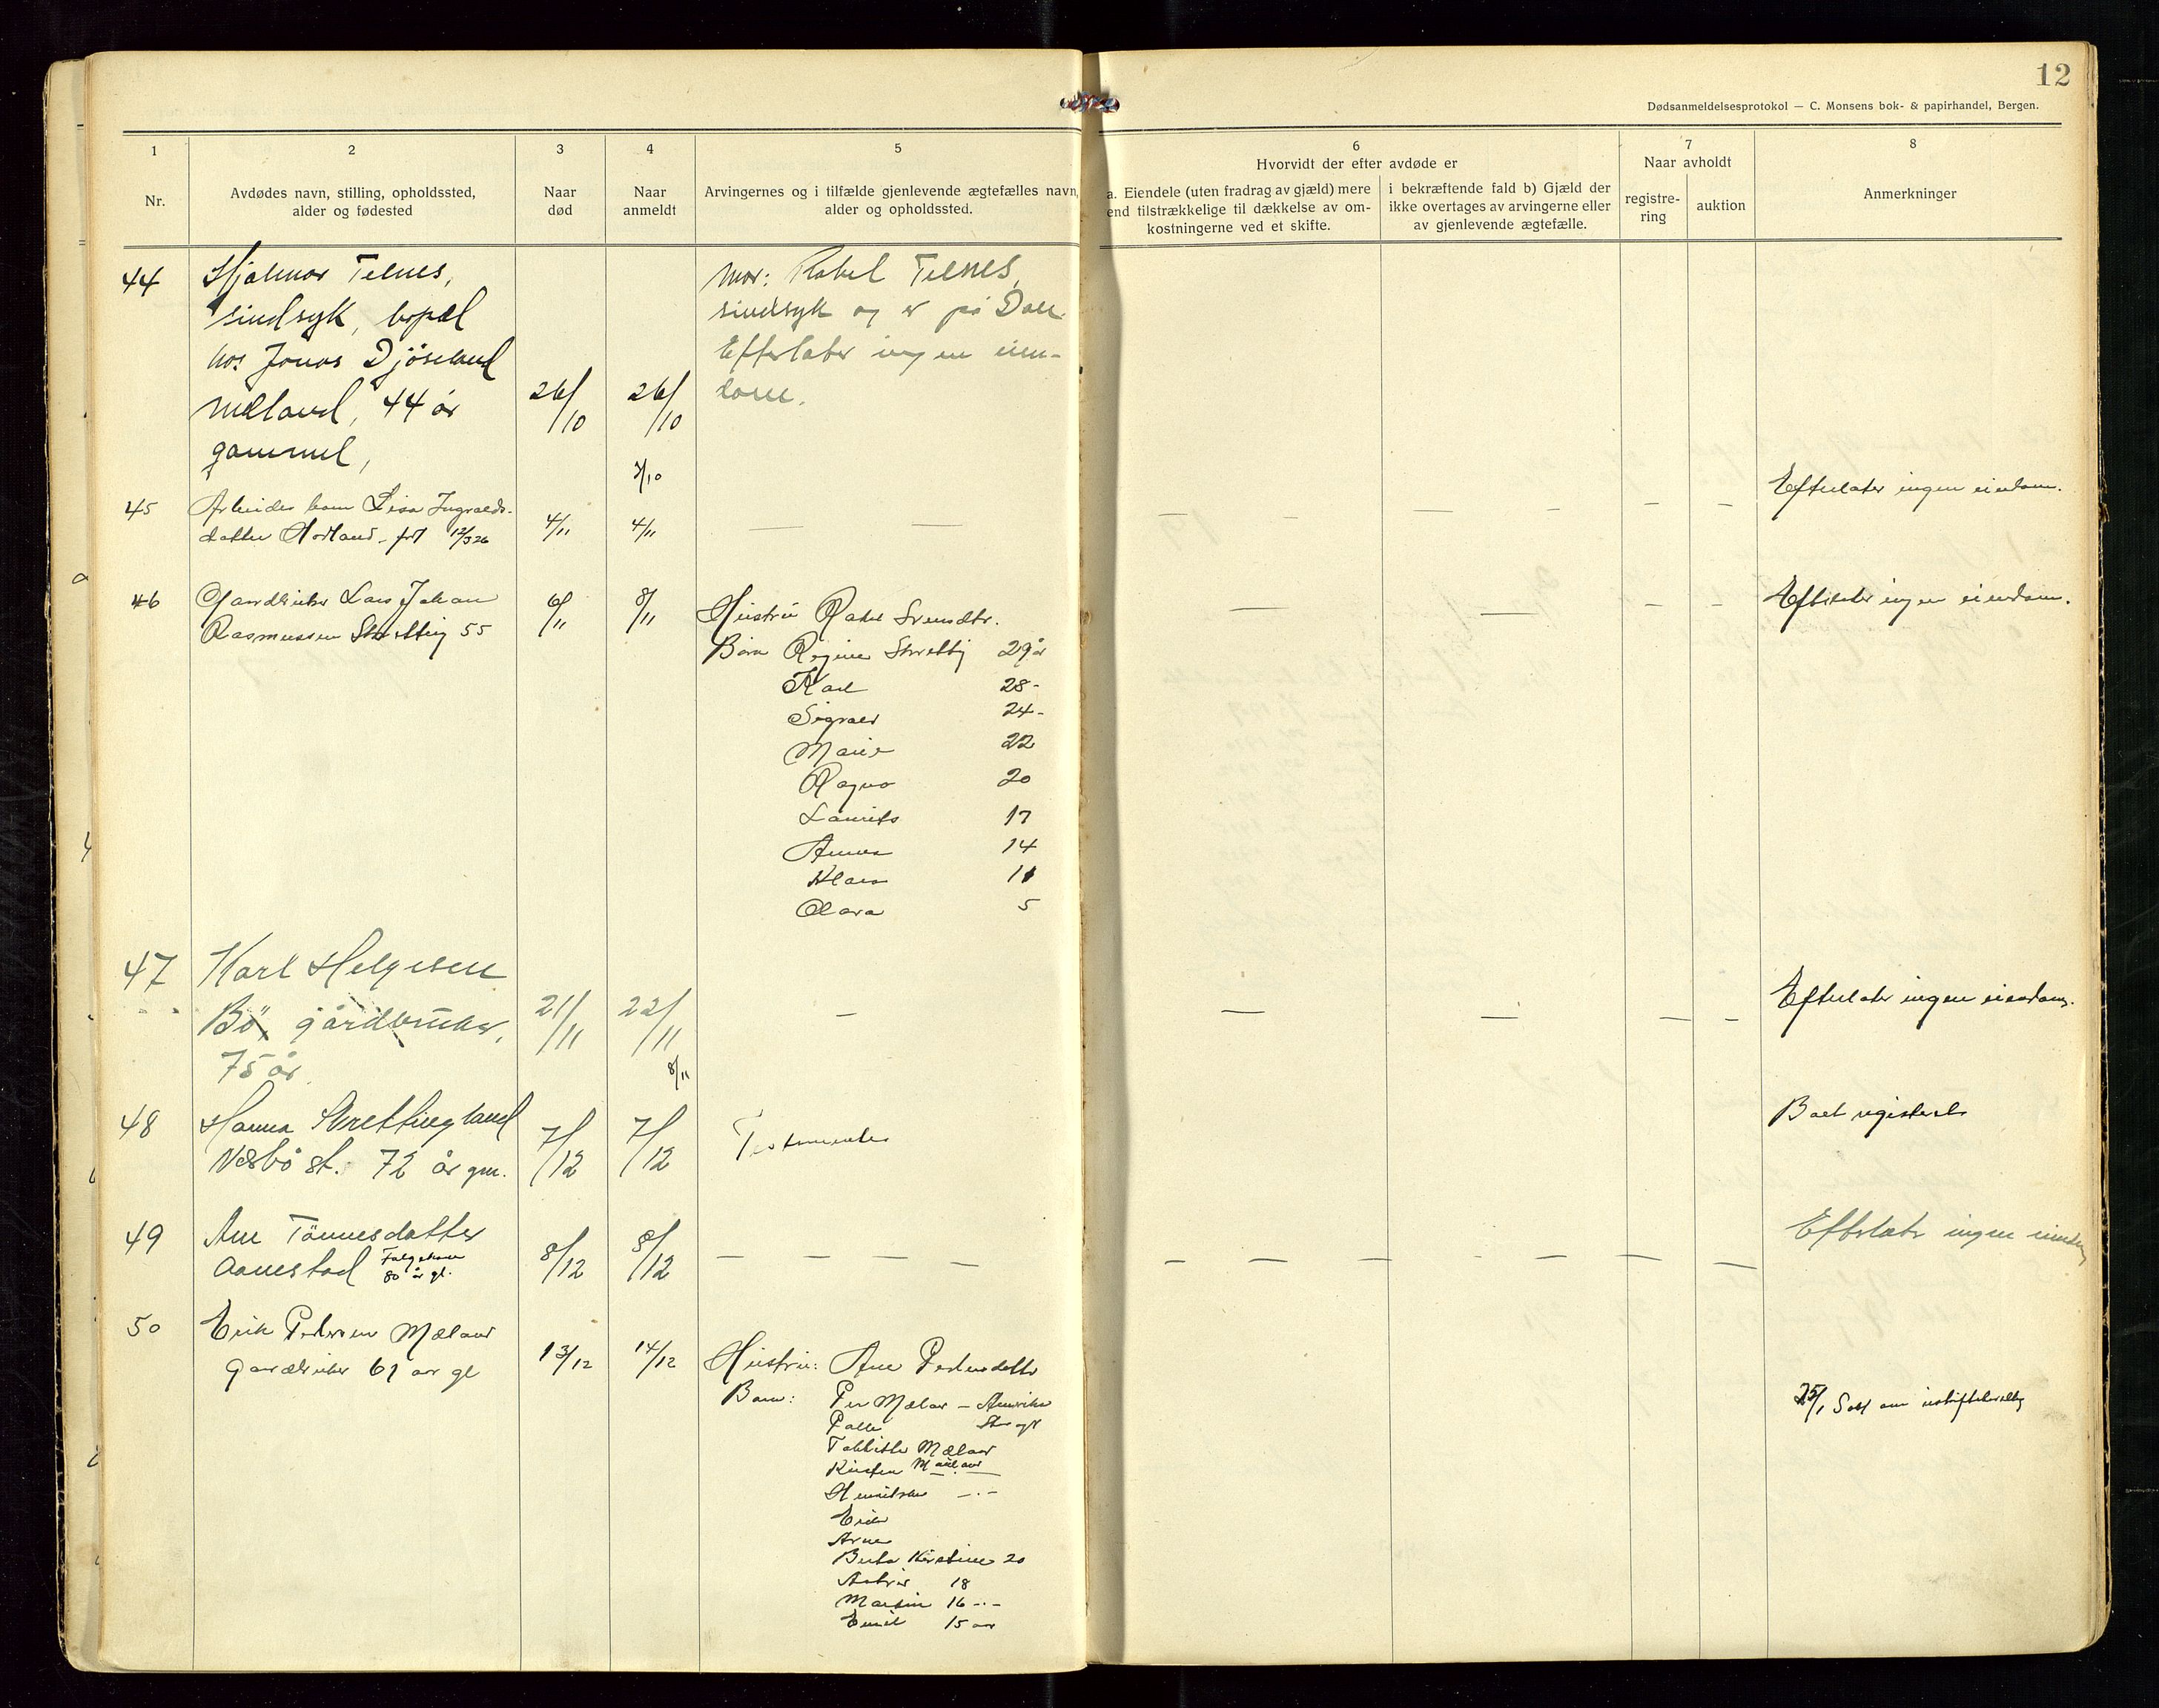 12
Dødsanmeldelsesprotokol — C. Monsens bok- & papirhandel, Bergen.
1
2
3
4
5
6
7
8
Nr.
Avdødes navn, stilling, opholdssted,
alder og fødested
Naar
død
Naar
anmeldt
Arvingernes og i tilfælde gjenlevende ægtefælles navn,
alder og opholdssted.
Hvorvidt der efter avdøde er
a. Eiendele (uten fradrag av gjæld) mere
end tilstrækkelige til dækkelse av om-
kostningerne ved et skifte.
i bekræftende fald b) Gjæld der
ikke overtages av arvingerne eller
av gjenlevende ægtefælle.
Naar avholdt
registre-
ring
auktion
Anmerkninger
44
Hjalmar Telnes,
sindsyk, bopæl
hos Jonas Djöseland
Mæland, 44 år
gammel,
26/10
26/10
3/10
Mor: Rakel Telnes,
sindsyk og er på Dale
Efterlater ingen eien-
dom.
45
Arbeider barn Lisa Ingvalds-
datter Hodland - født 12/3 26
4/11
4/11
— —
Efterlater ingen eiendom.
46
Gaardbruker Lars Johan
Rasmussen Skretting 55
6/11
8/11
Hustru Rakel Svendsdtr.
Barn Regine Skretting 29 år
Karl 28 -
Sigvald 24 -
Marie 22
Ragna 20
Laurits 17
Anna 14
Klara 11
Olava 5
Efterlater ingen eiendom.
47
Karl Helgesen
Bö, gårdbruker,
75 år
21/11
22/11
8/11
—
Efterlater ingen eiendom.
48
Hanna Skrettingland
Nærbö st. 72 år gm.
7/12
7/12
Testamenter
Boet registrert
49
Ane Tönnesdatter
Aanestad Folgekone
80 år gl.
8/12
8/12
— — — —
Efterlater ingen eiendom
50
Erik Pedersen Mæland
gaardbruker 61 aar gl
13/12
14/12
Hustru: Ane Pedersdatter
Barn: Per Mæland - Amerika
Palle
Tobbither Mæland
Kirsten Mæland
Henrikke — . —
Erik
Arne
Berta Kirstine 20
Astrid 18
Martin 16 - . -
Emil 15 aar
25/1 Søkt om uskiftebevilling